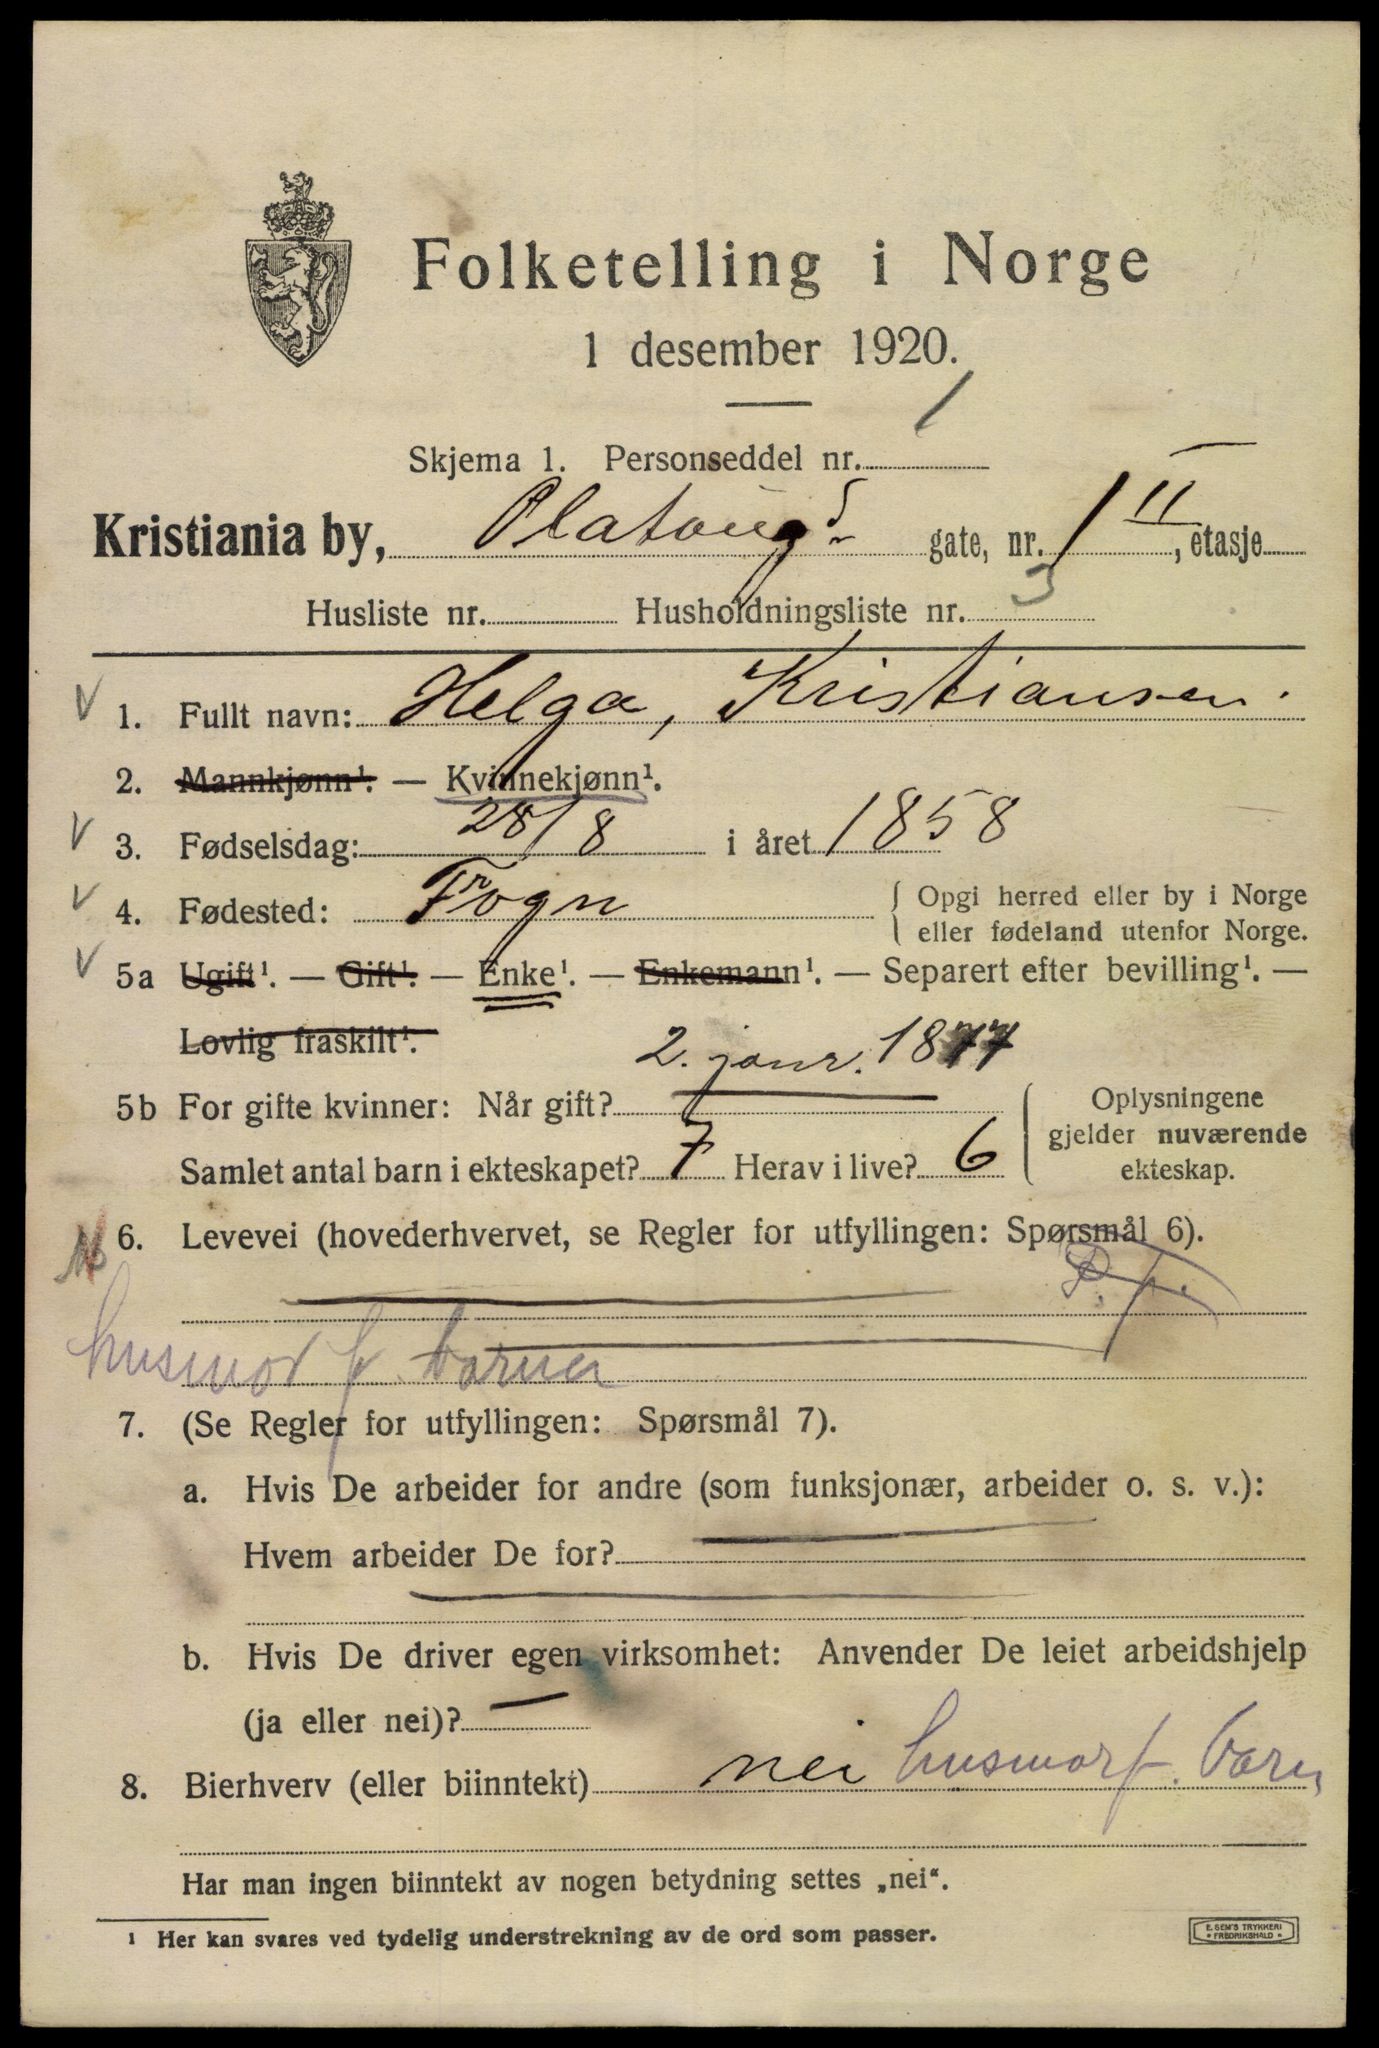 Folketelling i Norge
1 desember 1920.
Skjema 1. Personseddel nr. 1
Kristiania by, Platougs gate, nr. 1 II, etasje
Husliste nr. Husholdningsliste nr. 3
1. Fullt navn: Helga, Kristiansen.
2. Mannkjønn¹. — Kvinnekjønn¹.
3. Fødselsdag: 28/8 i året 1858
4. Fødested: Frogn { Opgi herred eller by i Norge
eller fødeland utenfor Norge.
5a Ugift¹. — Gift¹. — Enke¹. — Enkemann¹. — Separert efter bevilling¹. —
Lovlig fraskilt¹.
5b For gifte kvinner: Når gift? 2. janr. 1877
Samlet antal barn i ekteskapet? 7 Herav i live? 6
Oplysningene
gjelder nuværende
ekteskap.
6. Levevei (hovederhvervet, se Regler for utfyllingen: Spørsmål 6).
husmor f. barna
7. (Se Regler for utfyllingen: Spørsmål 7).
a. Hvis De arbeider for andre (som funksjonær, arbeider o. s. v.):
Hvem arbeider De for?
b. Hvis De driver egen virksomhet: Anvender De leiet arbeidshjelp
(ja eller nei)? —
8. Bierhverv (eller biinntekt) nei husmor f. barn
Har man ingen biinntekt av nogen betydning settes „nei“.
¹ Her kan svares ved tydelig understrekning av de ord som passer.
E. SEM'S TRYKKERI
* FREDRIKSHALD *